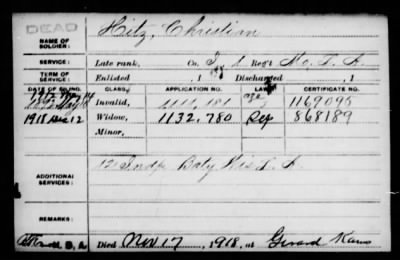 DEAD
NAME OF SOLDIER: Hitz, Christian
SERVICE: Late rank, Co. I, 1 Regt Mo. L. A.
TERM OF SERVICE: Enlisted , 1 Discharged , 1
DATE OF FILING. CLASS. APPLICATION NO. LAW. CERTIFICATE NO.
Invalid, 1169090
1918 Dec 12 Widow, 1132,780 Rep 868189
Minor,
ADDITIONAL SERVICES: 12 Indp Baty Wis L. A.
REMARKS:
Died Nov 17, 1918, at Girard Kans